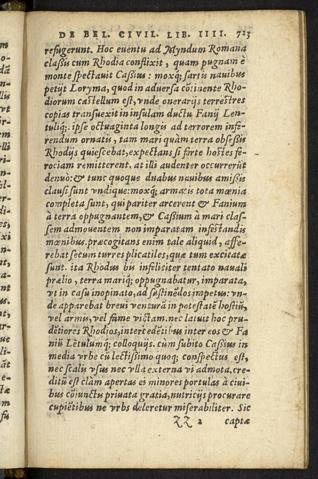 DE BEL. CIVIL. LIB. IIII. 723
refugerunt. Hoc euentu ad Myndum Romana
classis cum Rhodia conflixit, quam pugnam è
monte spectauit Cassius: moxq; sartis nauibus
petijt Loryma, quod in aduersa cōtinente Rho-
diorum castellum est, vnde onerarijs terrestres
copias transuexit in insulam ductu Fanij Len-
tuliq;. ipse octuaginta longis ad terrorem infe-
rendum ornatis, tam mari quàm terra obsessis
Rhodijs quiescebat, expectans si fortè hostes fe-
rociam remitterent. at illi audenter occurrerūt
denuò: & tunc quoque duabus nauibus amissis
clausi sunt vndique: moxq; armatis tota mœnia
completa sunt, qui pariter arcerent & Fanium
à terra oppugnantem, & Cassium à mari clas-
sem admouentem non imparatam infestandis
mœnibus. præcogitans enim tale aliquid, affe-
rebat secum turres plicatiles, quæ tum excitatæ
sunt. ita Rhodus bis infeliciter tentato nauali
prælio, terra mariq; oppugnabatur, imparata,
vt in casu inopinato, ad sustinēdos impetus: vn-
de apparebat breui venturā in potestatē hostiū,
vel armis, vel fame victam. nec latuit hoc pru-
dētiores Rhodios, interceditibus inter eos & Fa
nij Lētulumq; colloquijs. cùm subito Cassius in
media vrbe cū lectissimo quoq; conspectus est,
nec scalis vsus nec vlla externa vi admota. cre-
ditū est clàm apertas ei minores portulas à ciui-
bus cōiunctis priuata gratia, nutricijs procurare
cupiētibus ne vrbs deleretur miserabiliter. Sic
ZZ 2 captæ